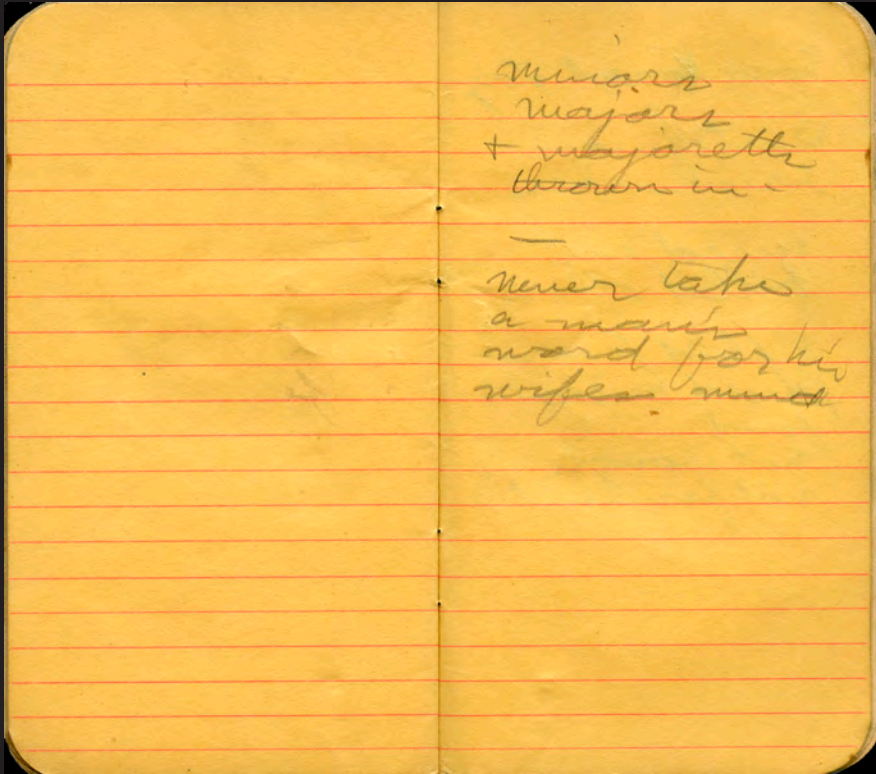 minors
majors
+ majorette
thrown in -
—
never take
a man's
word for his
wifes mind